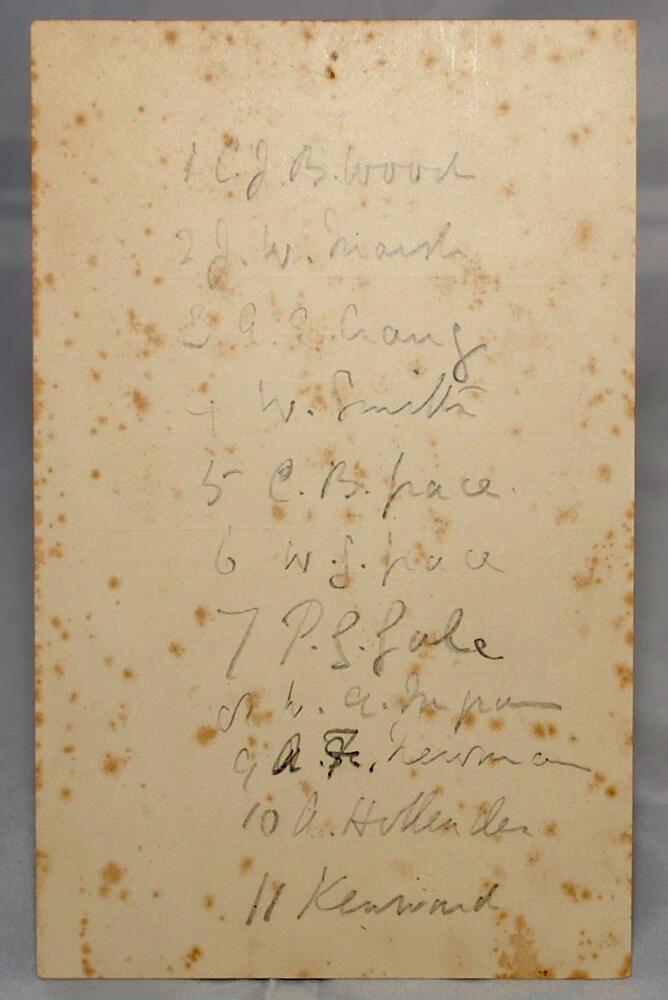 1 C. J. B. Wood
2 J. W. Marsh
3 A. E.
4 W. Smith
5 C. B. Grace.
6 W. G. Grace
7 P. G. Gale
8
9 A. F. Newman
10 A. Hollender
11 Kenward